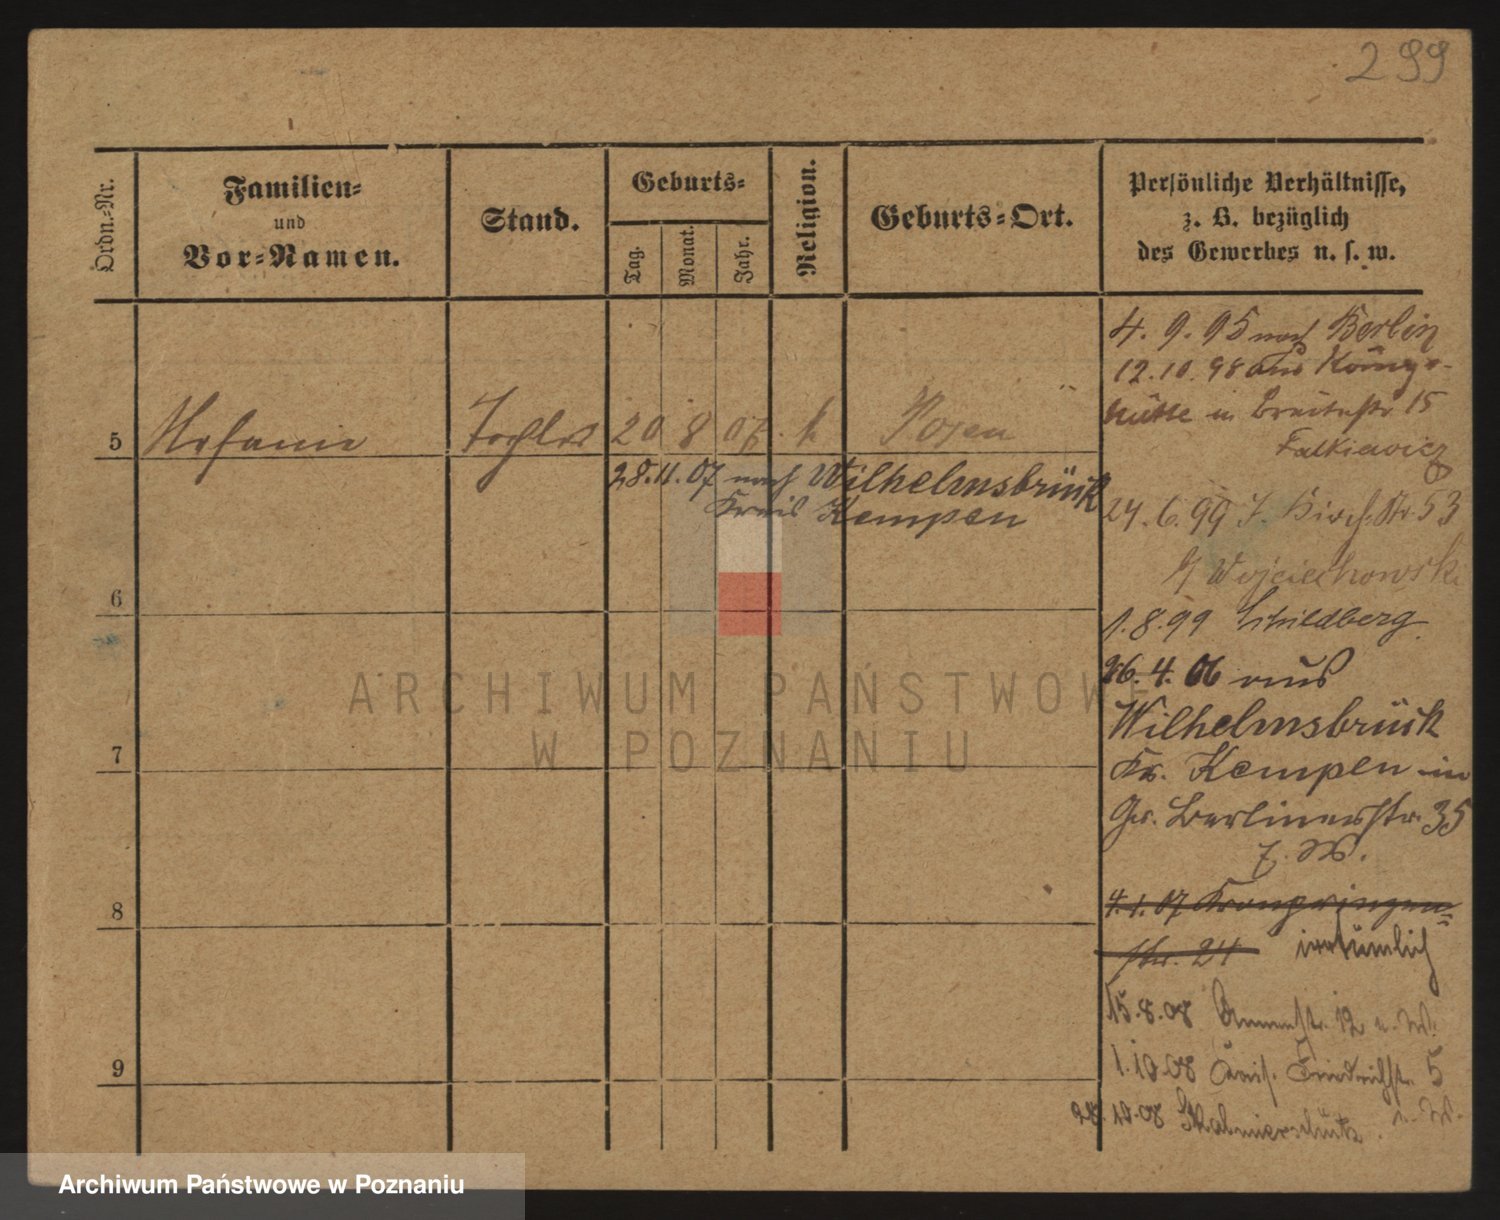 299
Ordn.-Nr.
Familien-
und
Vor-Namen.
Stand.
Geburts-
Tag.
Monat.
Jahr.
Religion.
Geburts-Ort.
Persönliche Verhältnisse,
z. B. bezüglich
des Gewerbes u. s. w.
4. 9. 95 nach Berlin
12.10.98 aus Königs-
hütte in Breitestr 15
Falkiewicz
5 Stefanie Tochter 20 8 07 k Posen
28.11.07 nach Wilhelmsbrück
Kreis Kempen
24.6.99 Str 53
Wojciechowski
1.8.99 Schildberg
26.4.06 aus
Wilhelmsbrück
Kr. Kempen in
Gr. Berlinerstr. 35
4.1.07 Kronprinzen=
str. 24 irrtümlich
15.8.08 12
1.10.08 Friedrichstr. 5
12.08 Skalmierschütz
6
7
8
9
ARCHIWUM PAŃSTWOWE
W POZNANIU
Archiwum Państwowe w Poznaniu